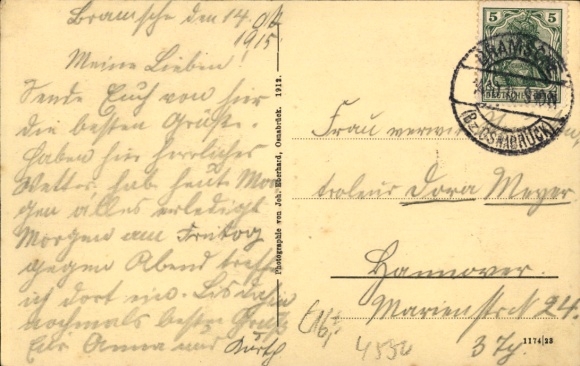 Bramsche den 14. Okt
1915.
Meine Lieben!
Sende Euch von hier
die besten Grüße.
Haben hier herrliches
Wetter, hab heut Mor
gen alles erledigt
Morgen am Freitag
gegen Abend treffe
ich dort ein. Bis dahin
nochmals beste Grüße
für Anna und
Photographie von Joh. Eberhard, Osnabrück. 1912.
5 5
BRAMSCHE
(Bz. OSNABRÜCK)
Frau verwit
troleur Dora Meyer
Hannover.
Marienstr 24.
4550
3 Tr.
1174|23